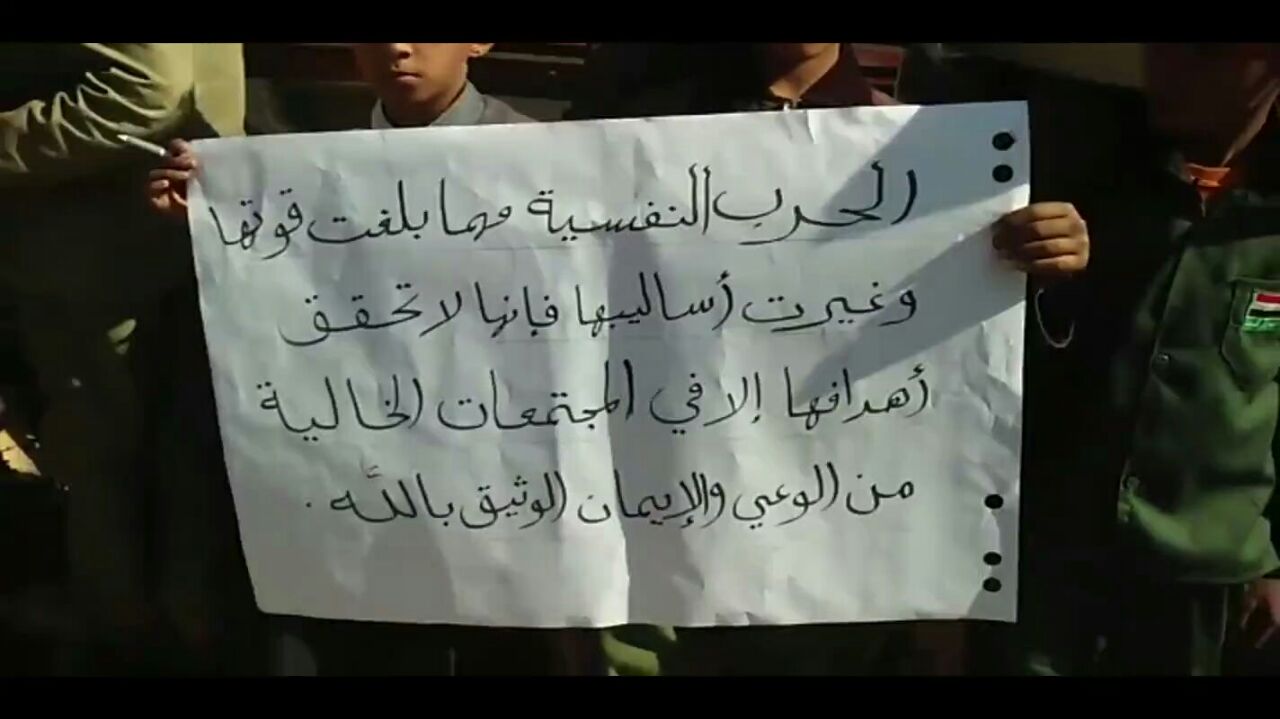 الحرب النفسية مهما بلغت قوتها
وغيرت أساليبها فإنها لا تحقق
أهدافها إلا في المجتمعات الخالية
من الوعي والإيمان الوثيق بالله .